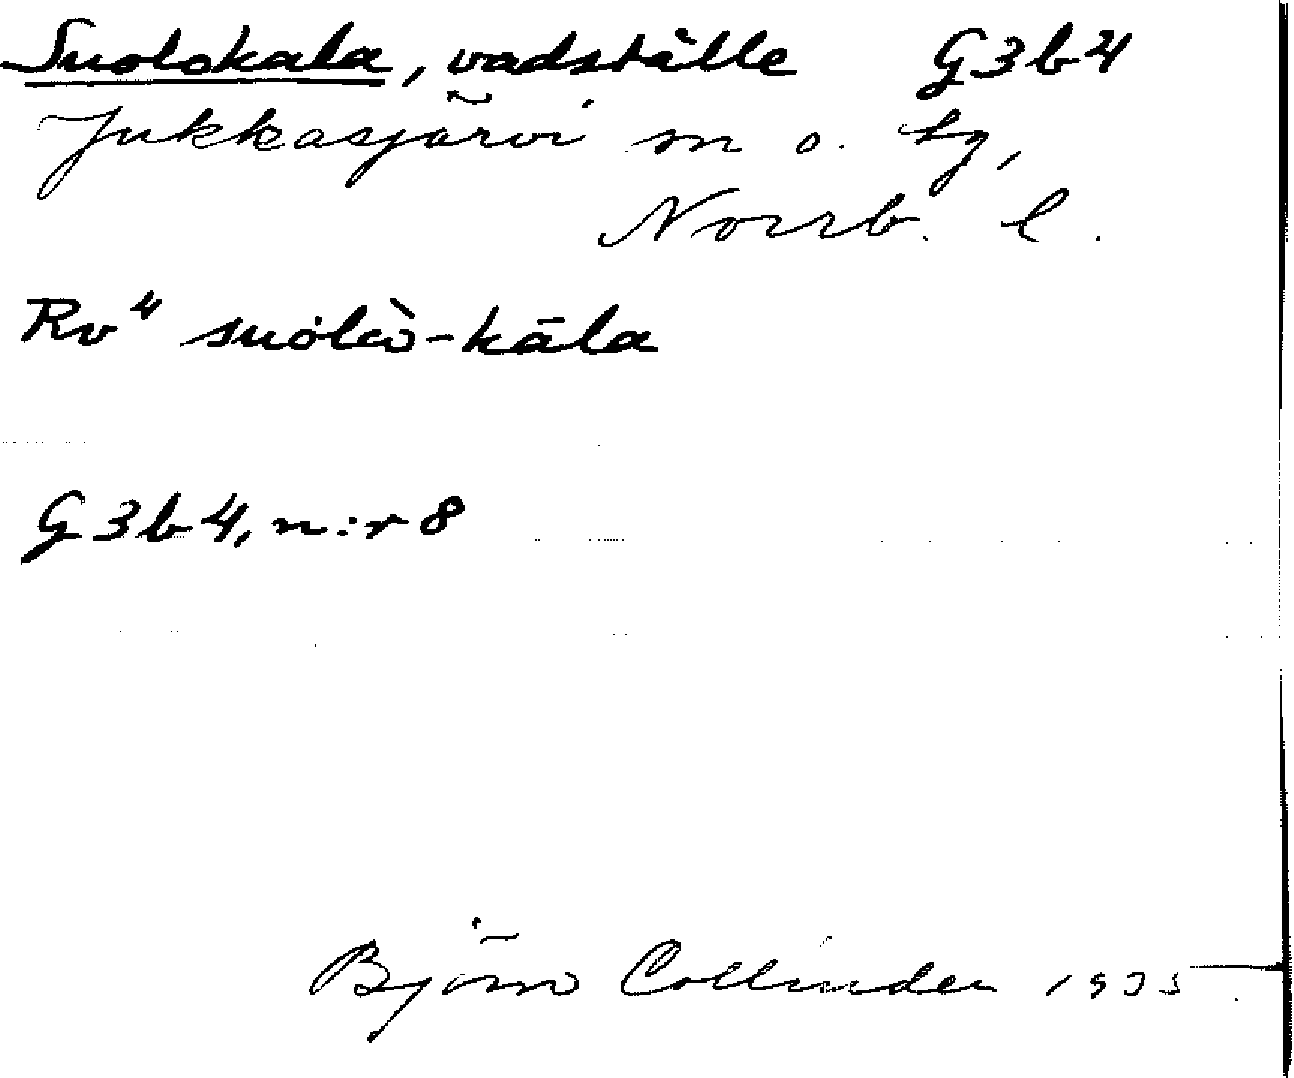 Suolokala, vadställe G3b4
Jukkasjärvi sn o. tg,
Norrb. l.
Rv⁴ suolò-kāla
G3b4, n:r 8
Björn Collinder 1935